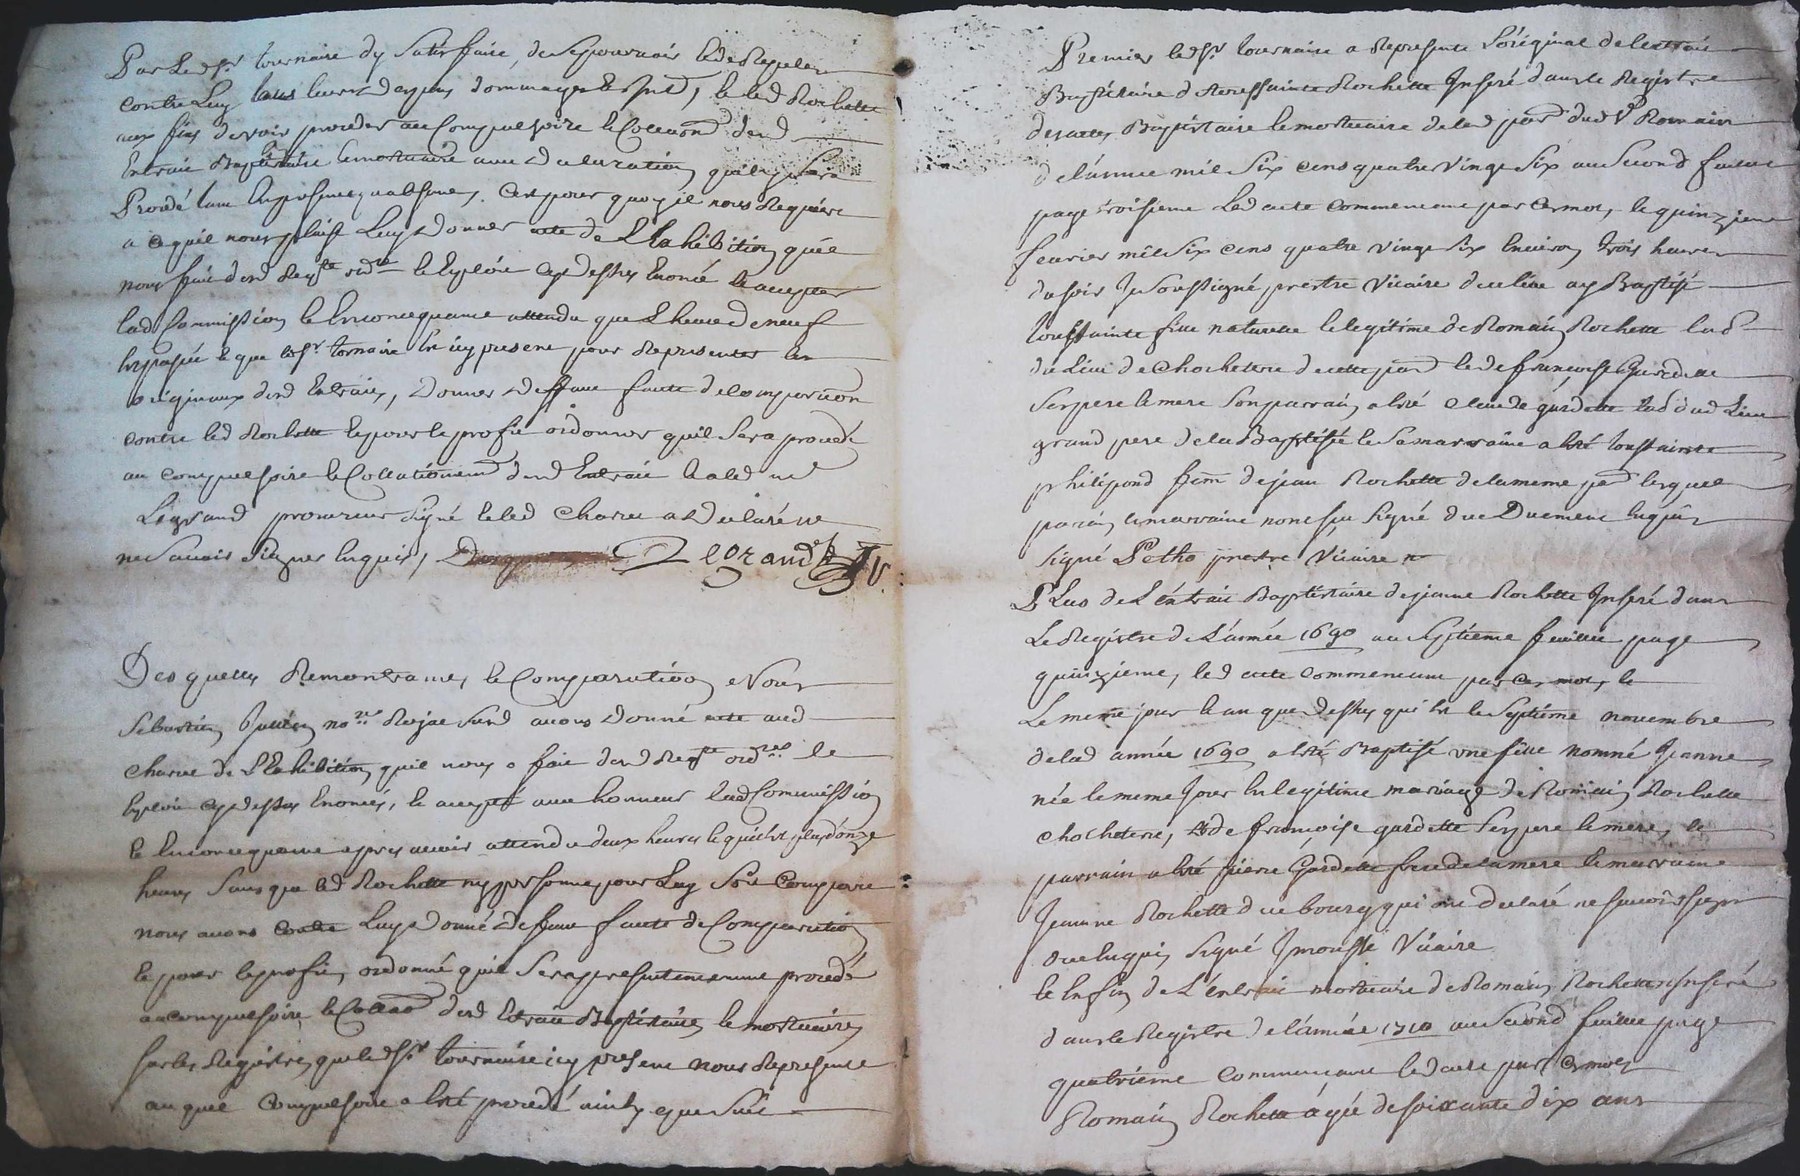 Par led sr tournaire dy satisfaire, de se pourvoir et de repeter
contre luy tous leurs depens dommages et, le led Rochette
aux fins de voir proceder au Compulsoire et Collaond desd
Extrait Baptistaire et mortuaire avec declaration quil sera
Procedé tant en presence qu absence, Cest pour quoy il nous Requiert
a ce quil nous plaise luy donner acte de L Exhibition quil
nous fait desd Regte ordre et Exploit Cy dessus Enoncé et accepter
lad Commission et En consequance attendu que L heure de neuf
est passée et que led sr tornaire Est icy present pour Representer les
originaux desd Extraits, donner deffaut faute de comparution
contre led Rochette et pour le profit ordonner qu'il sera procedé
au compulsoire et Collationemt desd Extrait et a led me
Legrand procureur signé et led Charra a declaré ne
ne savoir signer Enquis, Legrand
Des quelles Remontrances et Comparution Nous
Sebastien Jullien nore Royal susd avons donné acte aud
Charra de L Exhibition quil nous a fait desd Regte ordres et
Exploit cy dessus Enoncés, et accepté avec honneur lad Commission
et En consequance apres avoir attendu deux heures et quil est plus d'onze
heures sans que led Rochette ny personne pour Luy soit Comparu
nous avons contre Luy donné deffaut faute de Comparution
et pour le profit, ordonné quil sera presentement procedé
au compulsoire et Collaond desd Extraits Baptistaire et mortuaires
sur les Registres que led sr tournaire icy present nous Represente
au quel Compulsoire a Esté procedé ainsy que suit
Premier led sr tournaire a Represente L'original de l extrait
Baptistaire de Toussainte Rochette Inseré dans le Registre
des actes Baptistaire et mortuaire de lad parr dud St Romain
de l'année mil six cens quatre vingt six au second feuillet
page troisieme led acte commencant par ces mots, le quinzieme
fevrier mil six cens quatre vingt six environ trois heures
du soir Je soussigné prestre Vicaire dud lieu ay Baptisé
toussainte fille naturelle et legitime de Romain Rochette labr
du Lieu de Chocheterie de cette parr et de francoise Gardette
ses pere et mere son parrain a Esté Claude gardette labr dud Lieu
grand pere de la Baptisée et sa marraine a Esté toussainte
philipond fem de jean Rochette de la meme par lesquel
parain et marraine nont scu signé de ce Duement Enquis
signé Potho prestre Vicaire
Plus de L'extrait Baptistaire de jeanne Rochette Inseré dans
Le Registre de L'année 1690 au septieme feuillet page
quinzieme, led acte commencant par ces mots, le
Le meme jour et an que dessus qui Est le septieme novembre
de lad année 1690 a Esté Baptisé une fille nommé Jeanne
née le meme Jour En legitime mariage de Romain Rochette
chocheterie, et de francoise gardette ses pere et mere, le
parrain a Esté pierre Gardette frere de la mere et marraine
Jeanne Rochette du bourg qui ont declaré ne savoir signer
de ce Enquis signé Vicaire
et Enfin de L'extrait mortuaire de Romain Rochette Inseré
dans le Registre de l'année 1710 au second feuillet page
quatrieme commencant led acte par ces mots
Romain Rochette agé de soixante dix ans